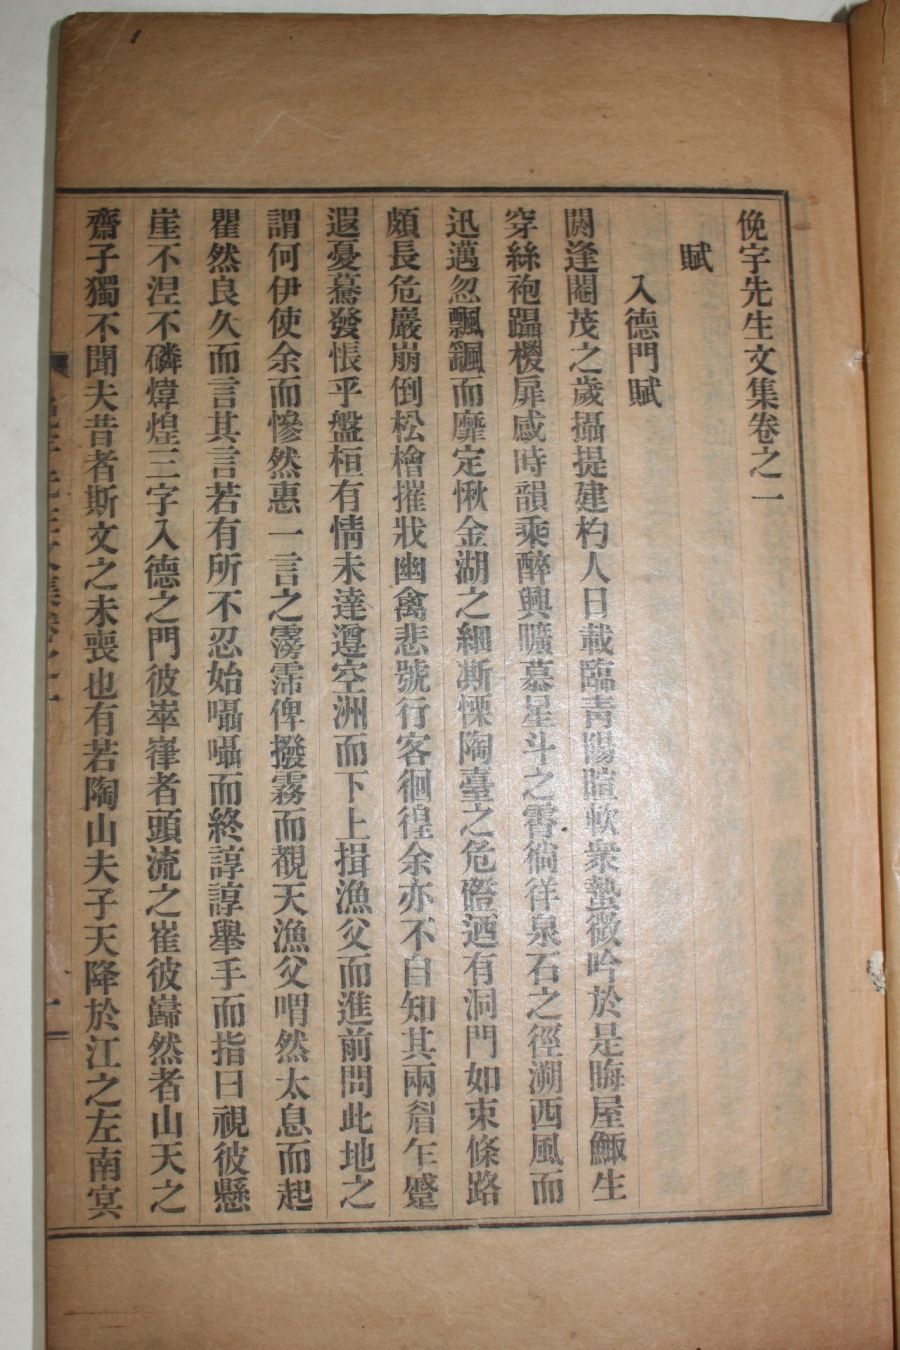 俛宇先生文集卷之一
賦
入德門賦
閼逢閹茂之歲攝提建杓人日載臨靑陽暄軟衆蟄微吟於是晦屋鯫生
穿絲袍躡椶扉感時韻乘醉興曠慕星斗之霄徜徉泉石之徑溯西風而
迅邁忽飄颻而靡定愀金湖之細澌慄陶臺之危磴迺有洞門如束條路
頗長危巖崩倒松檜摧戕幽禽悲號行客徊徨余亦不自知其兩眉乍蹙
遐憂驀發悵乎盤桓有情未達遵空洲而下上揖漁父而進前問此地之
謂何伊使余而慘然惠一言之霶霈俾撥霧而覩天漁父喟然太息而起
瞿然良久而言其言若有所不忍始囁囁而終諄諄擧手而指曰視彼懸
崖不涅不磷煒煌三字入德之門彼崒嵂者頭流之崔彼巋然者山天之
齋子獨不聞夫昔者斯文之未喪也有若陶山夫子天降於江之左南冥
俛宇先生文集卷之一
一